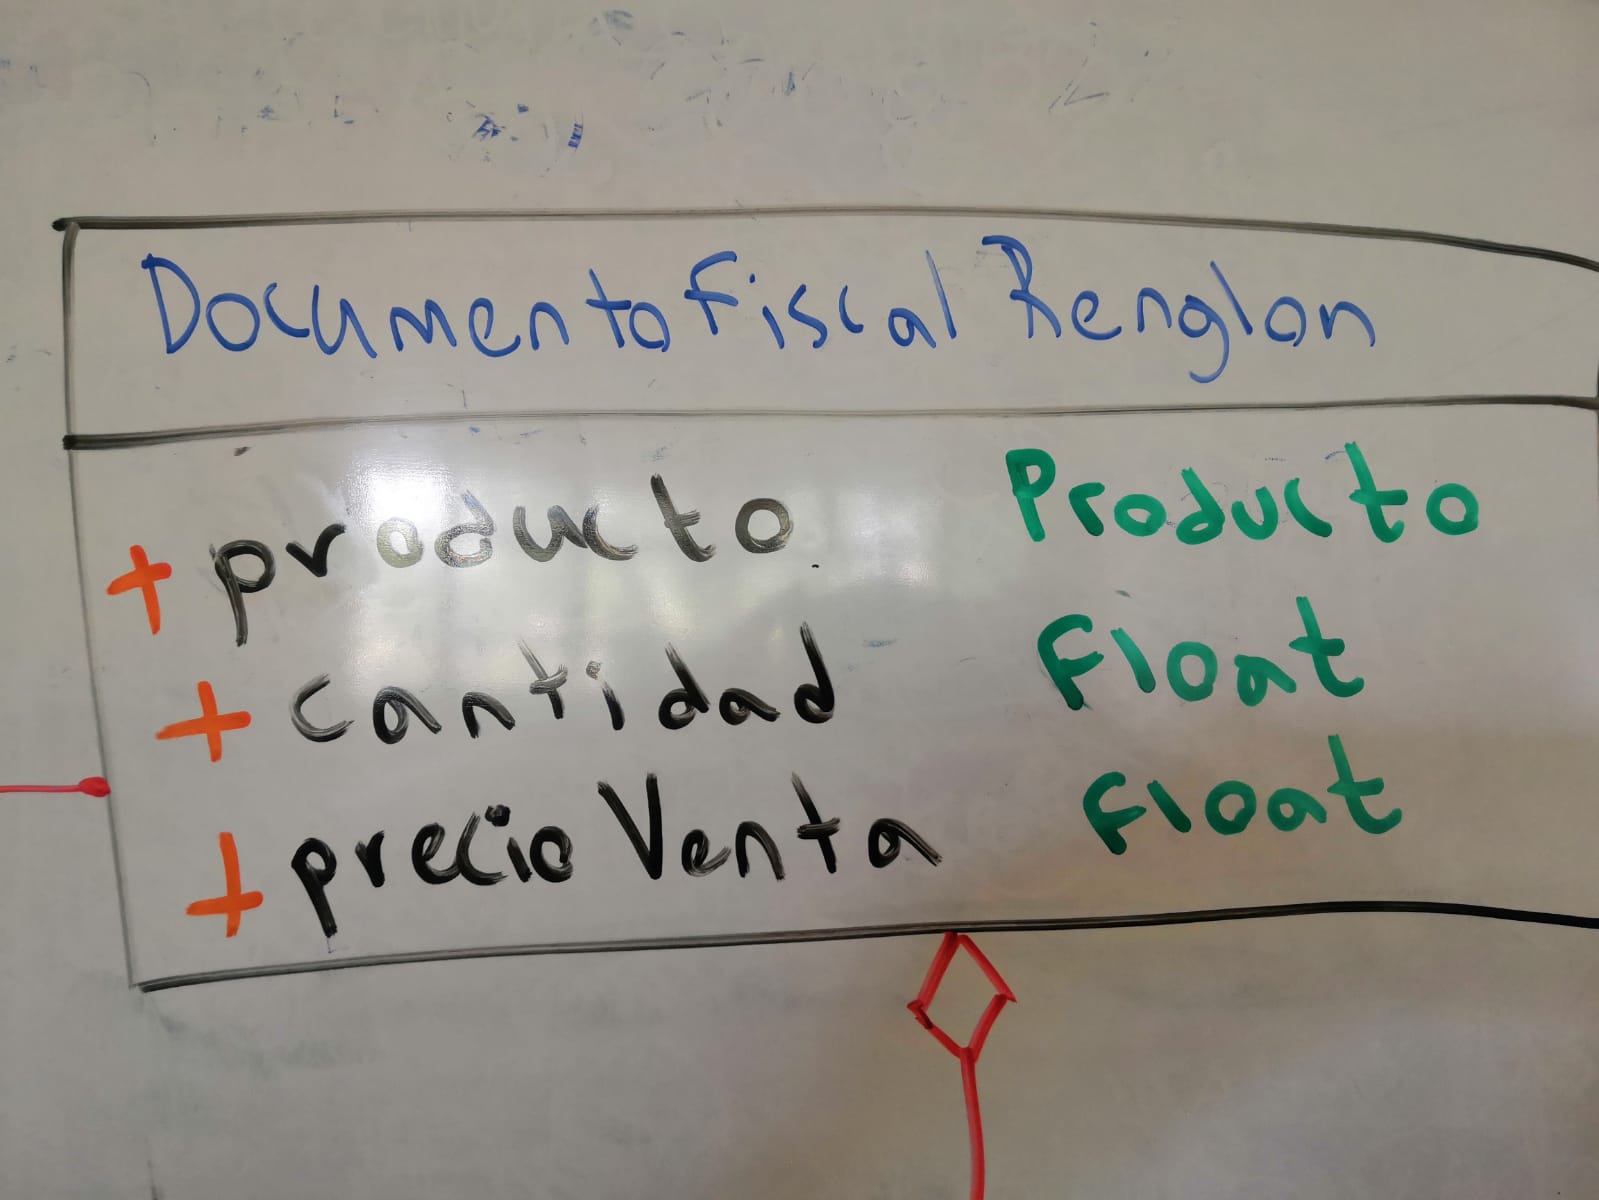 DocumentoFiscalRenglon
+ producto Producto
+ cantidad Float
+ precioVenta Float